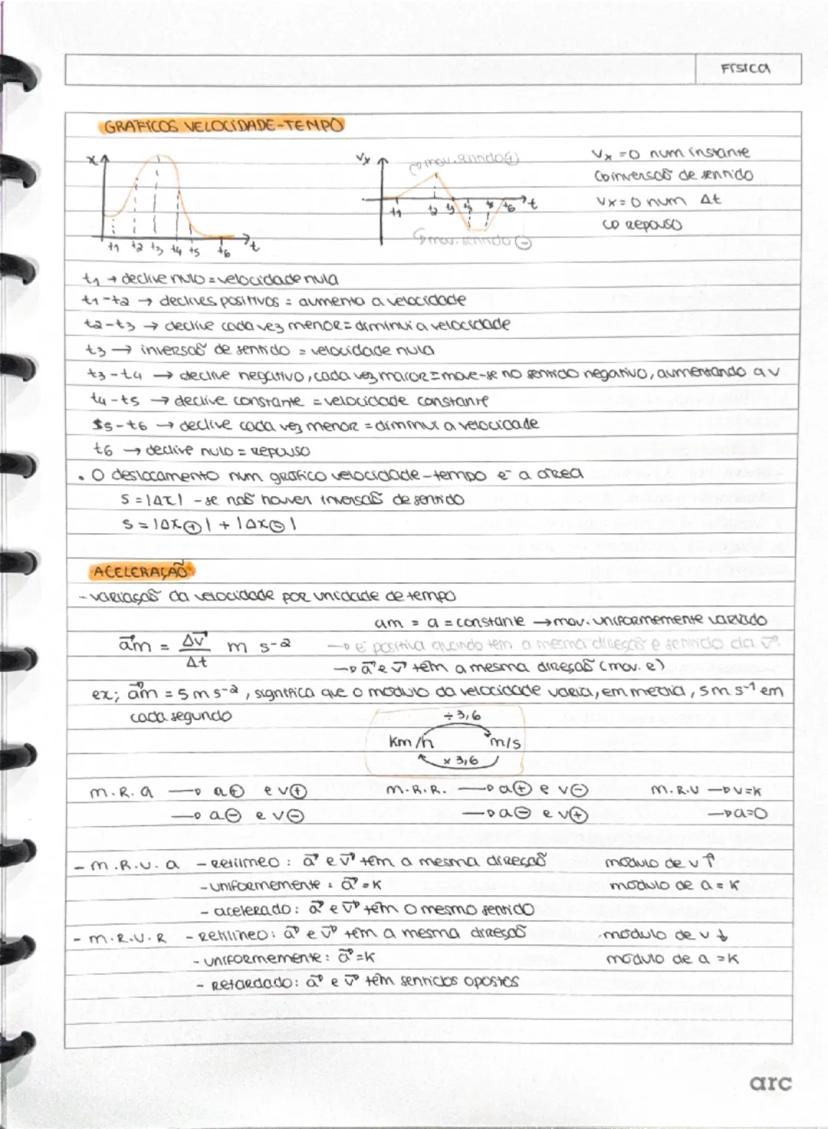 FÍSICA
GRÁFICOS VELOCIDADE-TEMPO
x
t1 t2 t3 t4 t5 t6 t
vx
↳ mov. sentido ⊕
t1 t2 t3 t4 t5 t6 t
↳ mov. sentido ⊖
vx = 0 num instante
↳ inversão de sentido
vx = 0 num Δt
↳ repouso
t1 → declive nulo = velocidade nula
t1-t2 → declives positivos = aumento a velocidade
t2-t3 → declive cada vez menor = diminui a velocidade
t3 → inversão de sentido = velocidade nula
t3-t4 → declive negativo, cada vez maior = move-se no sentido negativo, aumentando a v
t4-t5 → declive constante = velocidade constante
t5-t6 → declive cada vez menor = diminui a velocidade
t6 → declive nulo = repouso
• O deslocamento num gráfico velocidade-tempo é a área
s = |Δx| - se não houver inversão de sentido
s = |Δx⊕| + |Δx⊖|
ACELERAÇÃO
- variação da velocidade por unidade de tempo
am = a = constante → mov. uniformemente variado
a⃗m = Δv⃗ / Δt m s-2
→ é positiva quando tem a mesma direção e sentido da v⃗.
→ a⃗ e v⃗ têm a mesma direção (mov. e)
ex; a⃗m = 5 m s-2, significa que o módulo da velocidade varia, em média, 5 m s-1 em
cada segundo
÷ 3,6
km/h m/s
x 3,6
m.R.a → a⊕ e v⊕ m.R.R. → a⊕ e v⊖ m.R.U → v=k
→ a⊖ e v⊖ → a⊖ e v⊕ → a=0
- m.R.U.a - Retilíneo: a⃗ e v⃗ têm a mesma direção módulo de v ↑
- uniformemente: a⃗ = k módulo de a = k
- acelerado: a⃗ e v⃗ têm o mesmo sentido
- m.R.U.R - Retilíneo: a⃗ e v⃗ têm a mesma direção módulo de v ↓
- uniformemente: a⃗ = k módulo de a = k
- retardado: a⃗ e v⃗ têm sentidos opostos
arc